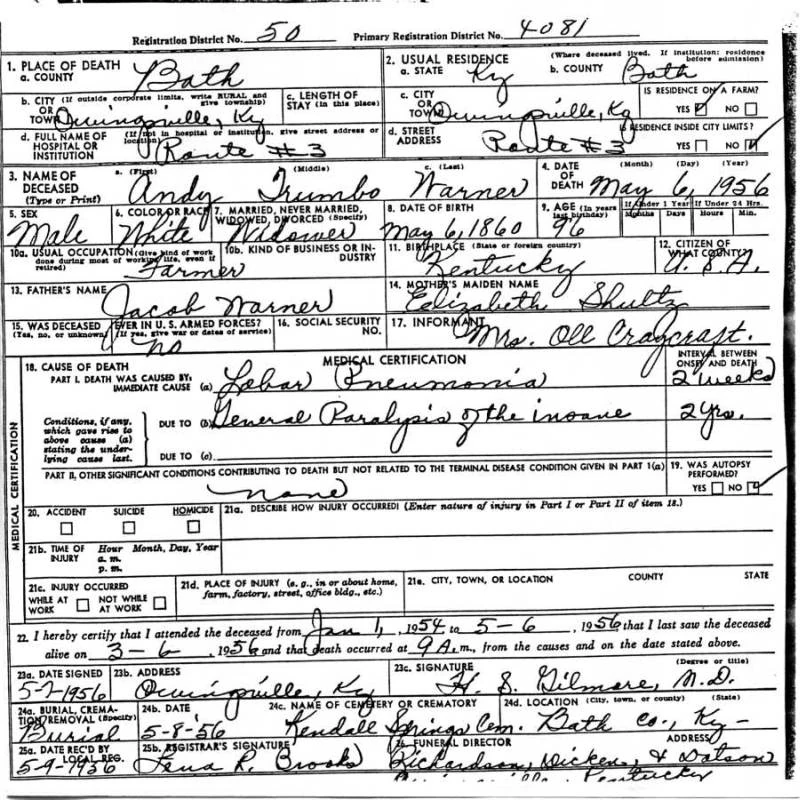 Registration District No. 50 Primary Registration District No. 4081
1. PLACE OF DEATH
a. COUNTY Bath
2. USUAL RESIDENCE (Where deceased lived. If institution: residence before admission)
a. STATE Ky b. COUNTY Bath
b. CITY (If outside corporate limits, write RURAL and give township) OR TOWN Owingsville, Ky
c. LENGTH OF STAY (in this place)
c. CITY OR TOWN Owingsville, Ky
IS RESIDENCE ON A FARM? YES NO
d. FULL NAME OF (If not in hospital or institution, give street address or location) HOSPITAL OR INSTITUTION Route #3
d. STREET ADDRESS Route #3
IS RESIDENCE INSIDE CITY LIMITS? YES NO
3. NAME OF DECEASED (Type or Print) a. (First) (Middle) c. (Last)
Andy Trumbo Warner
4. DATE OF DEATH (Month) (Day) (Year)
May 6, 1956
5. SEX Male
6. COLOR OR RACE White
7. MARRIED, NEVER MARRIED, WIDOWED, DIVORCED (Specify) Widower
8. DATE OF BIRTH May 6, 1860
9. AGE (In years last birthday) 96
If Under 1 Year Months Days
If Under 24 Hrs. Hours Min.
10a. USUAL OCCUPATION (Give kind of work done during most of working life, even if retired) Farmer
10b. KIND OF BUSINESS OR INDUSTRY
11. BIRTHPLACE (State or foreign country) Kentucky
12. CITIZEN OF WHAT COUNTY? U.S.A.
13. FATHER'S NAME Jacob Warner
14. MOTHER'S MAIDEN NAME Elizabeth Shultz
15. WAS DECEASED EVER IN U. S. ARMED FORCES? (Yes, no, or unknown) (If yes, give war or dates of service) no
16. SOCIAL SECURITY NO.
17. INFORMANT Mrs. Oll Craycraft.
MEDICAL CERTIFICATION
18. CAUSE OF DEATH
PART I. DEATH WAS CAUSED BY:
IMMEDIATE CAUSE (a) Lobar Pneumonia
INTERVAL BETWEEN ONSET AND DEATH
2 weeks
Conditions, if any, which gave rise to above cause (a) stating the underlying cause last.
DUE TO (b) General Paralysis of the insane 2 yrs.
DUE TO (c)
PART II, OTHER SIGNIFICANT CONDITIONS CONTRIBUTING TO DEATH BUT NOT RELATED TO THE TERMINAL DISEASE CONDITION GIVEN IN PART 1(a)
none
19. WAS AUTOPSY PERFORMED? YES NO
MEDICAL CERTIFICATION
20. ACCIDENT SUICIDE HOMICIDE
21a. DESCRIBE HOW INJURY OCCURRED! (Enter nature of injury in Part I or Part II of item 18.)
21b. TIME OF INJURY Hour Month, Day, Year
a. m.
p. m.
21c. INJURY OCCURRED
WHILE AT WORK NOT WHILE AT WORK
21d. PLACE OF INJURY (e. g., in or about home, farm, factory, street, office bldg., etc.)
21e. CITY, TOWN, OR LOCATION COUNTY STATE
22. I hereby certify that I attended the deceased from Jan 1, 1954 to 5-6, 1956 that I last saw the deceased
alive on 3-6, 1956 and that death occurred at 9 A.m., from the causes and on the date stated above.
23a. DATE SIGNED 5-7-1956
23b. ADDRESS Owingsville, Ky
23c. SIGNATURE (Degree or title) H. S. Gilmore, M.D.
24a. BURIAL, CREMATION, REMOVAL (Specify) Burial
24b. DATE 5-8-56
24c. NAME OF CEMETERY OR CREMATORY Kendall Springs Cem.
24d. LOCATION (City, town, or county) (State) Bath Co., Ky-
25a. DATE REC'D BY LOCAL REG. 5-9-1956
25b. REGISTRAR'S SIGNATURE Lena R. Brooks
FUNERAL DIRECTOR ADDRESS
Richardson, Dickens, & Dotson
Owingsville, Kentucky